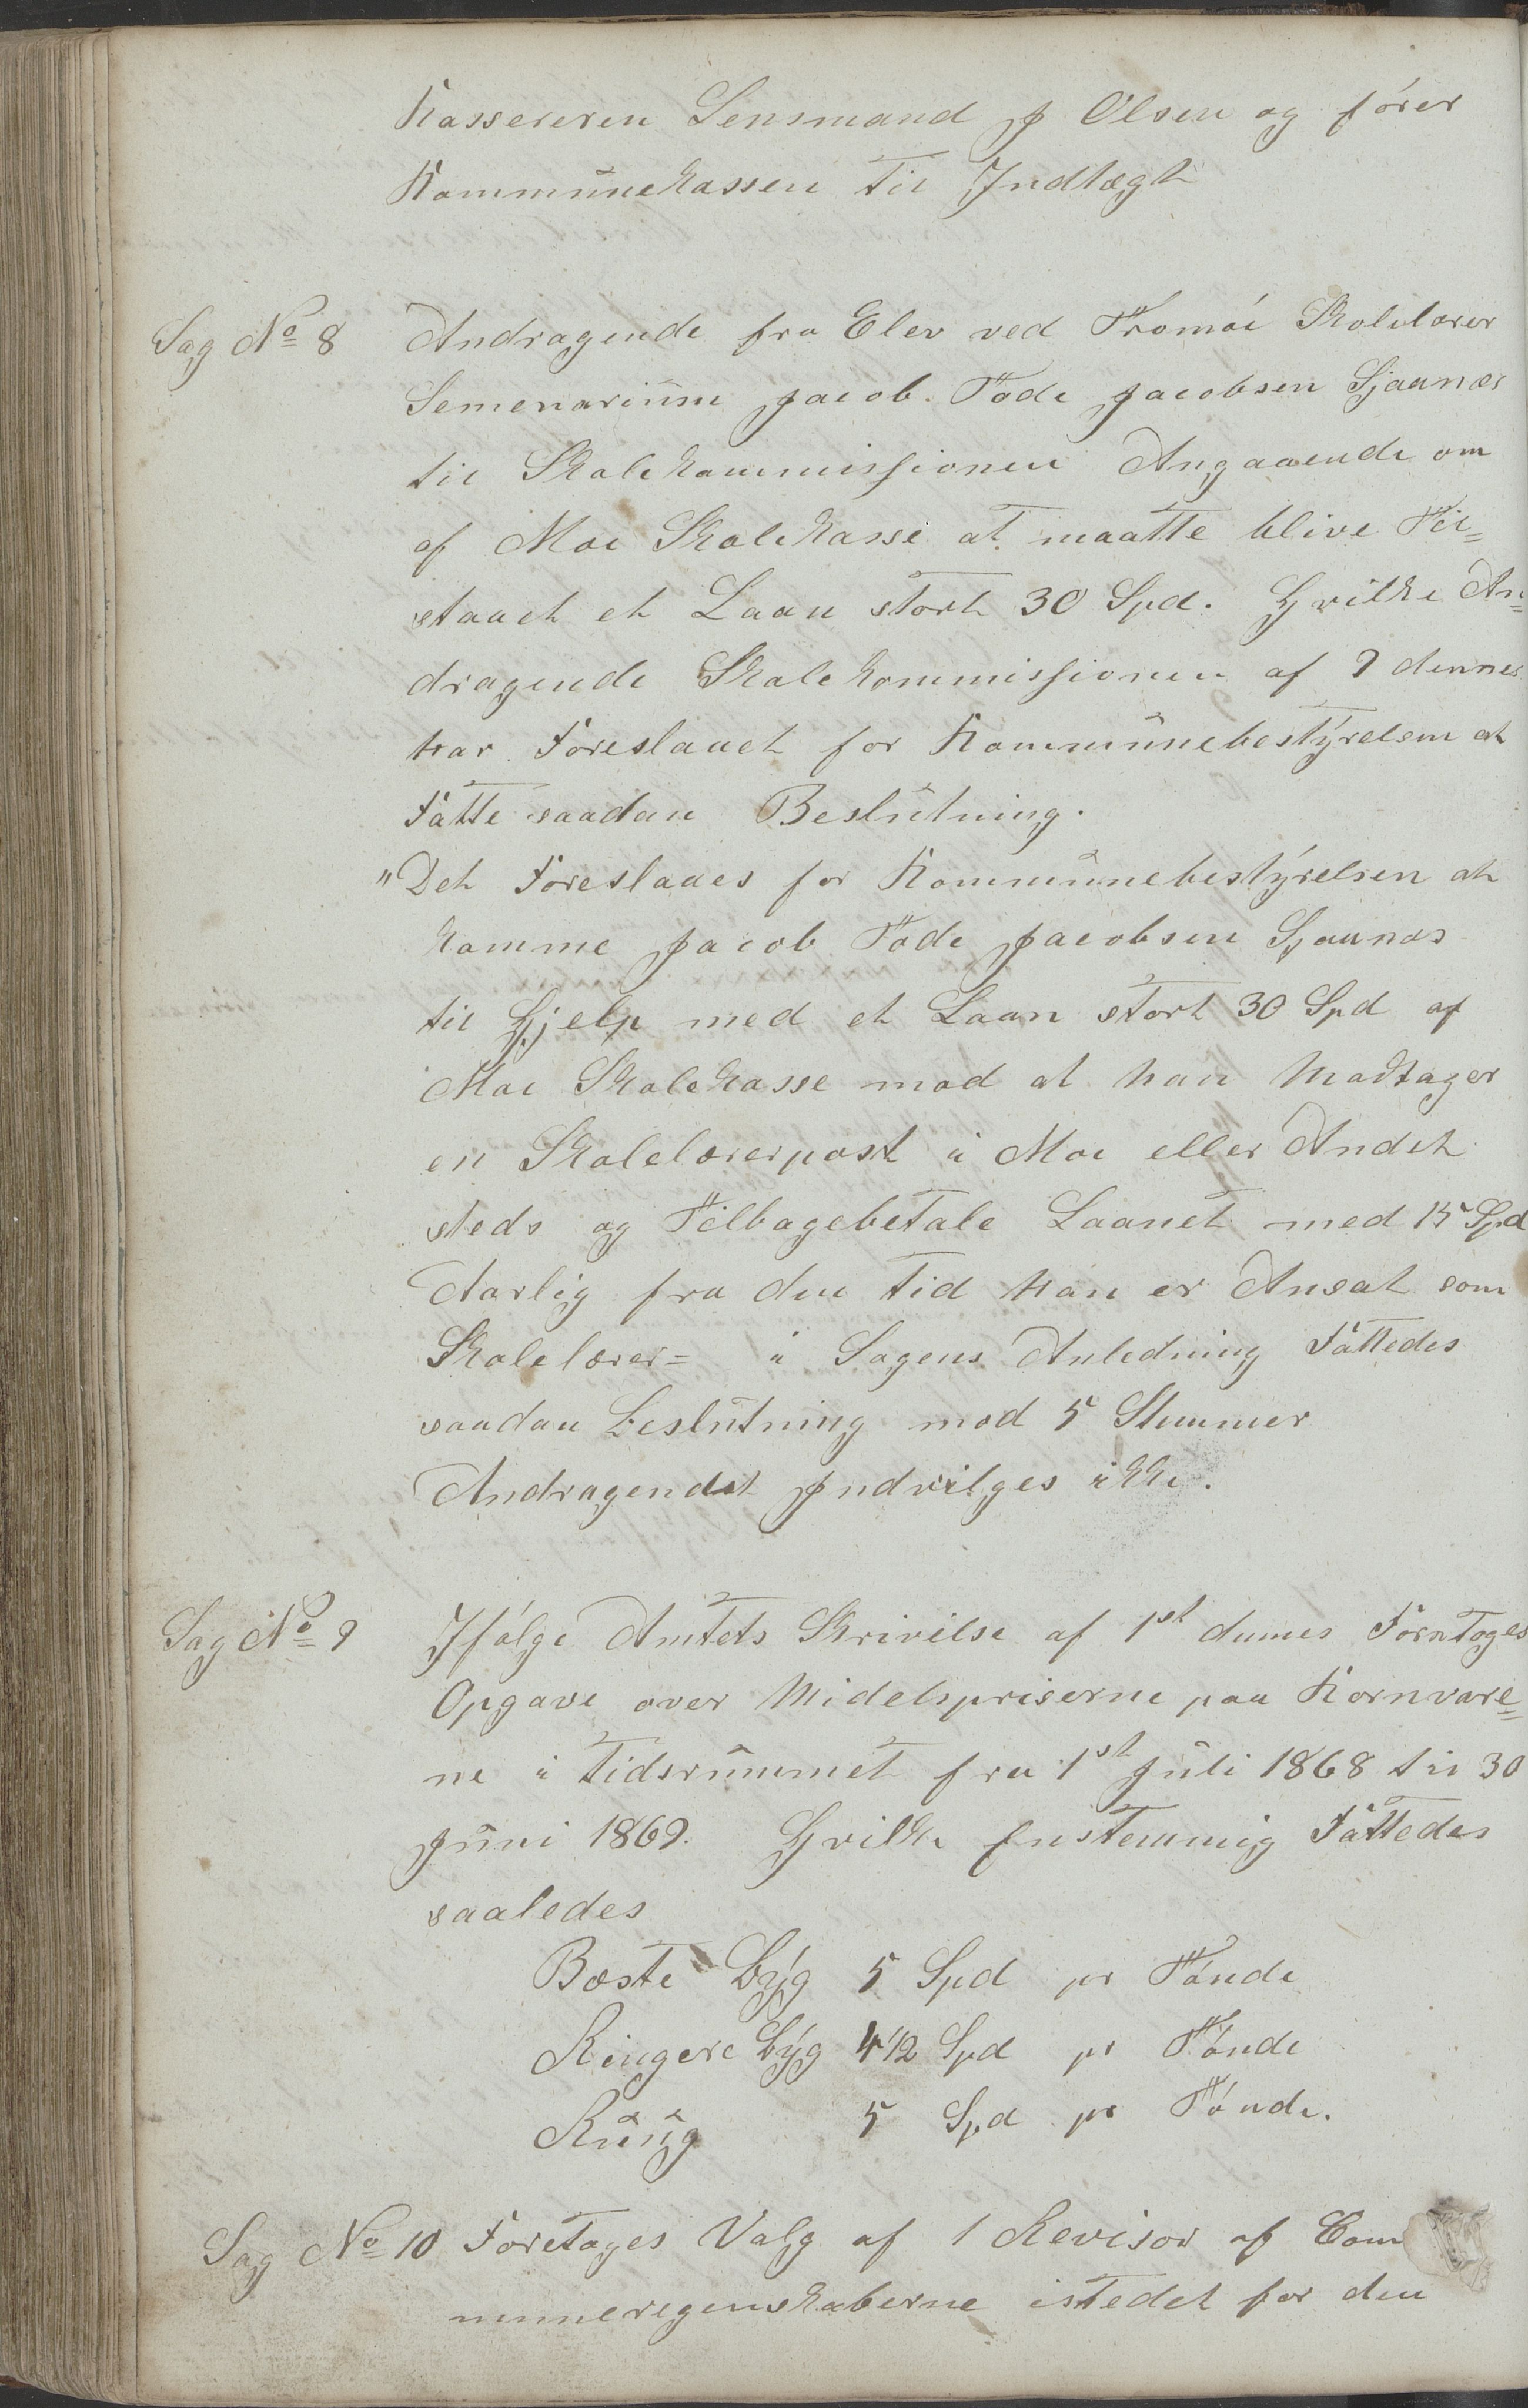 Kassereren Lensmand J Olsen og fører
Kommunekassen til Indtægt
Sag No 8 Andragende fra Elev ved Tromsøe Skolelærer
Semenarium Jacob. Tode Jacobsen Sjaanæs
til Skolekommissionen Angaaende om
af Moe Skolekasse at maatte blive Til=
staaet et Laan stort 30 Spd. Hvilke An=
dragende Skolekommissionen af 9 dennes
har Foreslaaet for Kommunebestyrelsen at
Fatte saadan Beslutning.
"Det Foreslaaes for Kommunebestyrelsen at
komme Jacob Tode Jacobsen Sjaanæs
til Hjelp med et Laan stort 30 Spd af
Moe Skolekasse mod at han Modtager
en Skolelærerpost i Moe eller Andet
steds og Tilbagebetale Laanet med 15 Spd
Aarlig fra den Tid han er Ansat som
Skolelærer= i Sagens Anledning Fattedes
saadan Beslutning mod 5 Stemmer
Andragendet Indvilges ikke.
Sag No 9 Ifølge Amtets Skrivelse af 1st dennes Foretoges
Opgave over Midelspriserne paa Kornvare=
ne i Tidsrummet fra 1st Juli 1868 til 30
Juni 1869. Hvilke Enstemmig Fattedes
saaledes
Bæste Byg 5 Spd pr Tønde
Ringere Byg 4 1/2 Spd pr Tønde
Ruug 5 Spd pr Tønde.
Sag No 10 Foretages Valg af 1 Revisor af Com
muneregenskaberne istedet for den